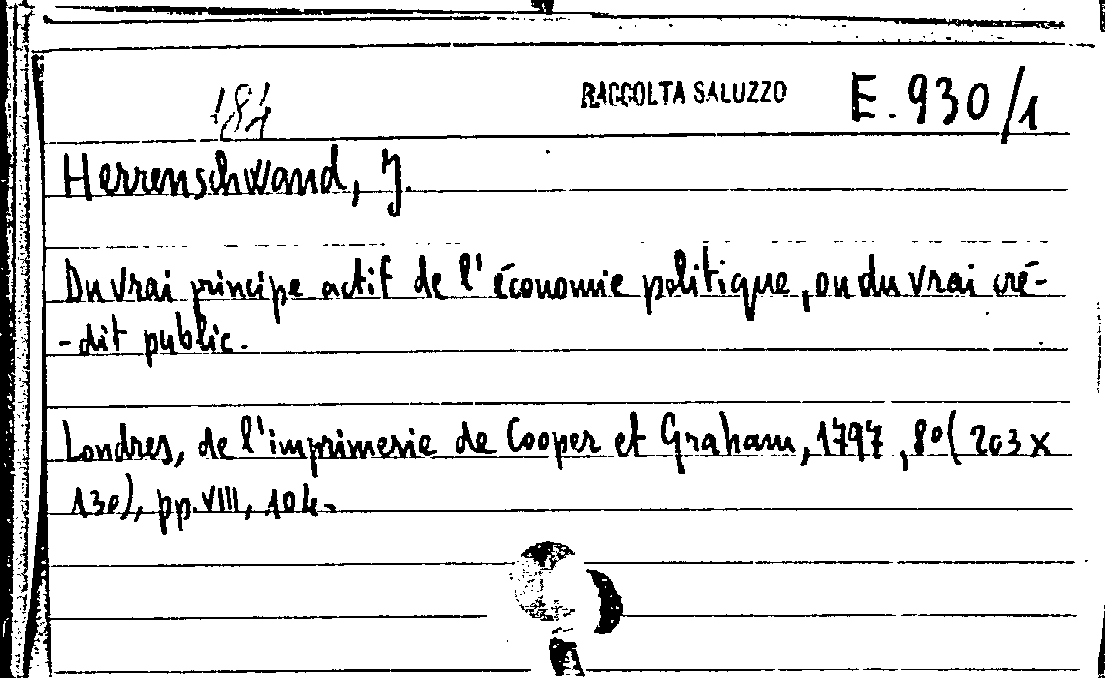 184 RACCOLTA SALUZZO E. 930/1
Herrenschwand, J.
Du vrai principe actif de l'économie politique, ou du vrai cré-
-dit public.
Londres, de l'imprimerie de Cooper et Graham, 1797, 8°( 203 x
130), pp. VIII, 104.